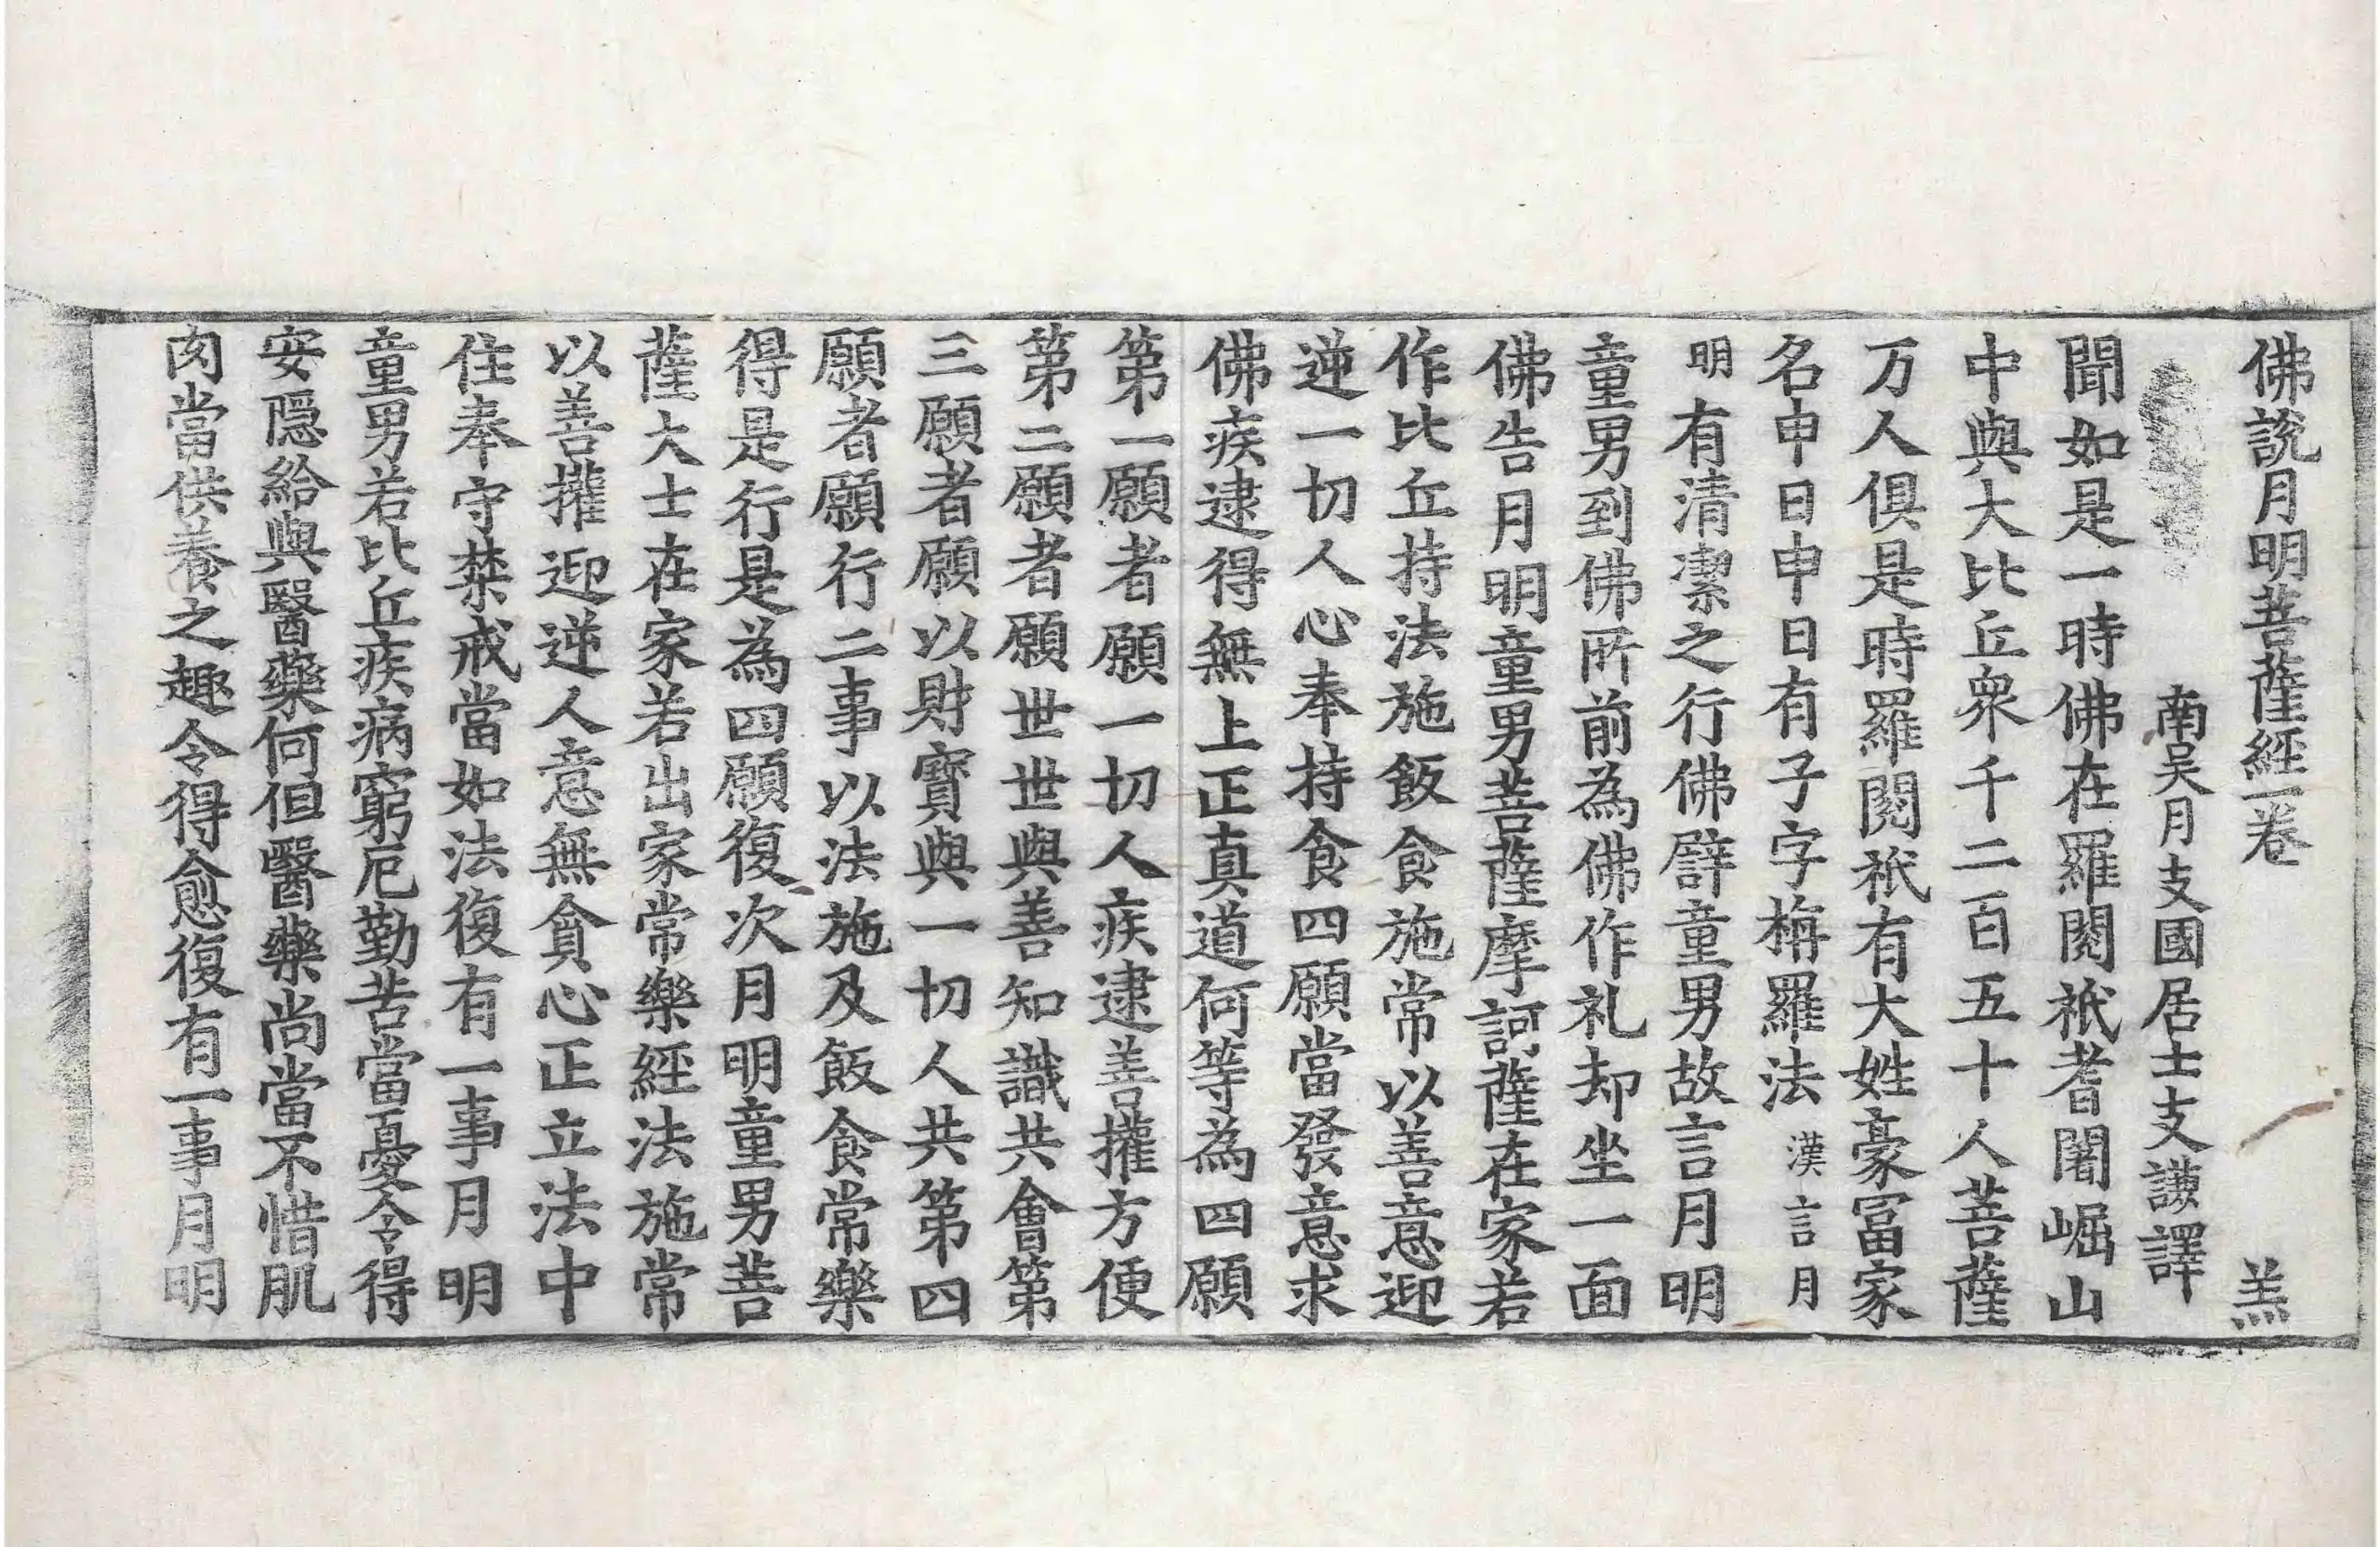 佛說月明菩薩經一卷 羔
南吴月支國居士支謙譯
聞如是一時佛在羅閱祇耆闍崛山
中與大比丘衆千二百五十人菩薩
万人俱是時羅閱祇有大姓豪冨家
名申日申日有子字栴羅法漢言月
明有清潔之行佛辟童男故言月明
童男到佛所前為佛作礼却坐一面
佛告月明童男菩薩摩訶薩在家若
作比丘持法施飯食施常以善意迎
逆一切人心奉持食四願當發意求
佛疾逮得無上正真道何等為四願
第一願者願一切人疾逮善權方便
第二願者願世世與善知識共會第
三願者願以財寳與一切人共第四
願者願行二事以法施及飯食常樂
得是行是為四願復次月明童男菩
薩大士在家若出家常樂經法施常
以善權迎逆人意無貪心正立法中
住奉守禁戒當如法復有一事月明
童男若比丘疾病窮厄勤苦當憂令得
安隱給與醫藥何但醫藥尚當不惜肌
肉當供養之趣令得愈復有一事月明